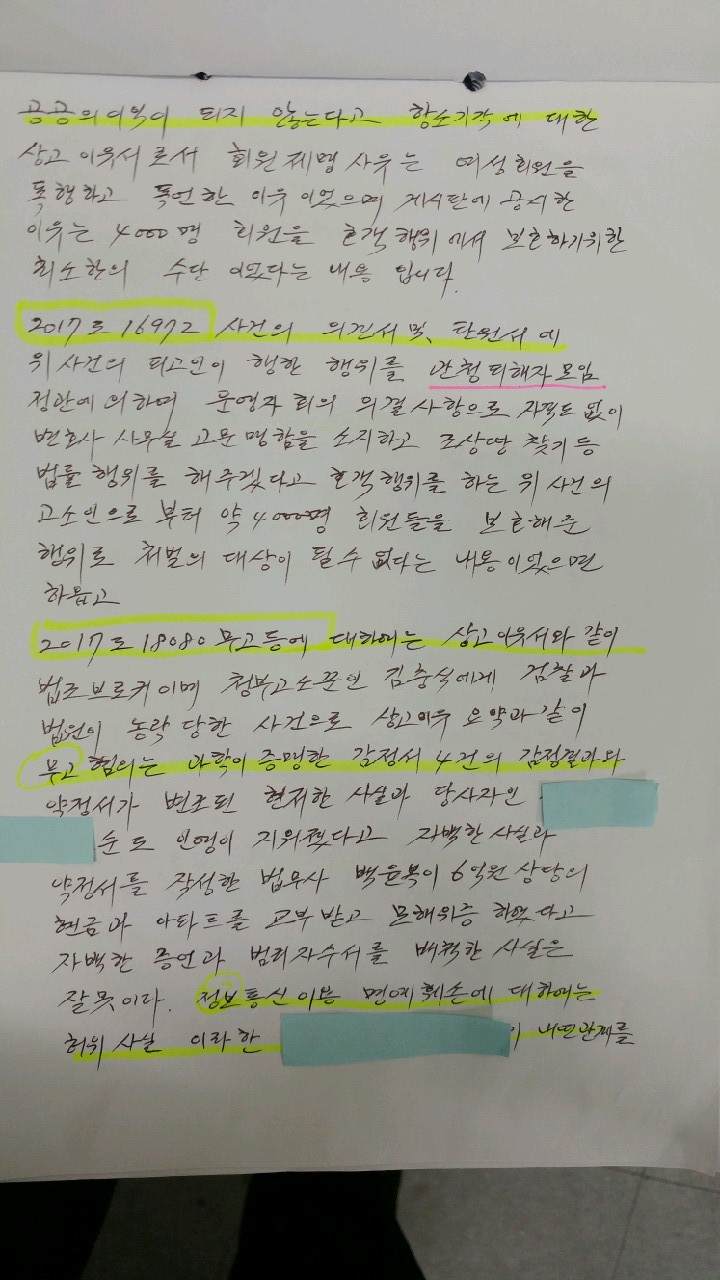 공공의이익이 되지 않는다고 항소기각에 대한
상고이유서로서 회원제명 사유는 여성회원을
폭행하고 폭언한 이유이었으며 게시판에 공시한
이유는 4000명 회원을 호객행위에서 보호하기위한
최소한의 수단 이었다는 내용 입니다.
2017도 16972 사건의 의견서 및, 탄원서에
위 사건의 피고인이 행한 행위를 관청피해자모임
정관에 의하여 운영자 회의 의결사항으로 자격도 없이
변호사 사무실 고문 명함을 소지하고 조상땅 찾기등
법률행위를 해주겠다고 호객행위를 하는 위 사건의
고소인으로 부터 약 4000명 회원들을 보호해준
행위로 처벌의 대상이 될 수 없다는 내용이었으면
하옵고
2017도 18080 무고등에 대하여는 상고이유서와 같이
법조브로커이며 청부고소꾼인 김충식에게 검찰과
법원이 농락 당한 사건으로 상고이유 요약과 같이
무고 혐의는 과학이 증명한 감정서 4건의 감정결과와
약정서가 변조된 현저한 사실과 당사자인
순도 인영이 지워졌다고 자백한 사실과
약정서를 작성한 법무사 백윤복이 6억원 상당의
현금과 아파트를 교부받고 모해위증 하였다고
자백한 증언과 범죄자수서를 배척한 사실은
잘못이라. 정보통신이용 명예훼손에 대하여는
허위사실 이라한 이 내연관계를